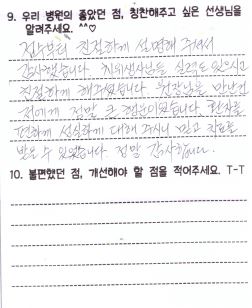 9. 우리 병원의 좋았던 점, 칭찬해주고 싶은 선생님을
알려주세요. ^^♡
접수부터 친절하게 설명해 주셔서
감사했습니다. 치위생사님들 실력도 있으시고
친절하게 해주셨습니다. 원장님을 만난건
저에게 정말 큰 행운이었습니다. 환자를
편하게 성심하게 대해 주시니 믿고 치료를
받을 수 있었습니다. 정말 감사합니다.
10. 불편했던 점, 개선해야 할 점을 적어주세요. T-T